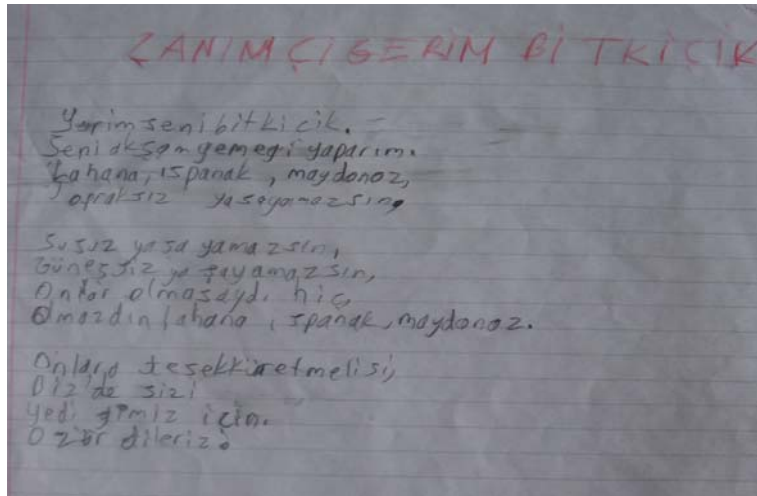 CANIM CİGERİM BİTKİCİK
Yerim seni bitkicik.
Seni akşam yemegi yaparım.
Lahana, ıspanak, maydonoz,
Topraksız yaşayamazsın,
Susuz yaşayamazsın,
Güneşsiz yaşayamazsın,
Onlar olmasaydı hiç,
Olmazdın lahana, ıspanak, maydonoz.
Onlara teşekküretmelisi,
Biz'de sizi
yedigimiz için.
Özür dileriz.